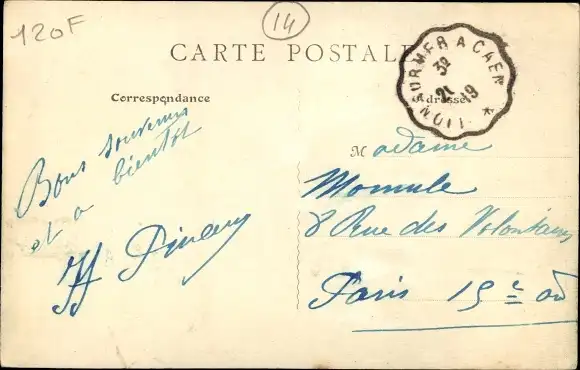 120F
14
CARTE POSTALE
LION SUR MER A CAEN
32
21 19
Correspondance
Adresse
Bons souvenirs
et a bientôt
Madame
Momule
8 Rue des Volontaires
Paris 15e